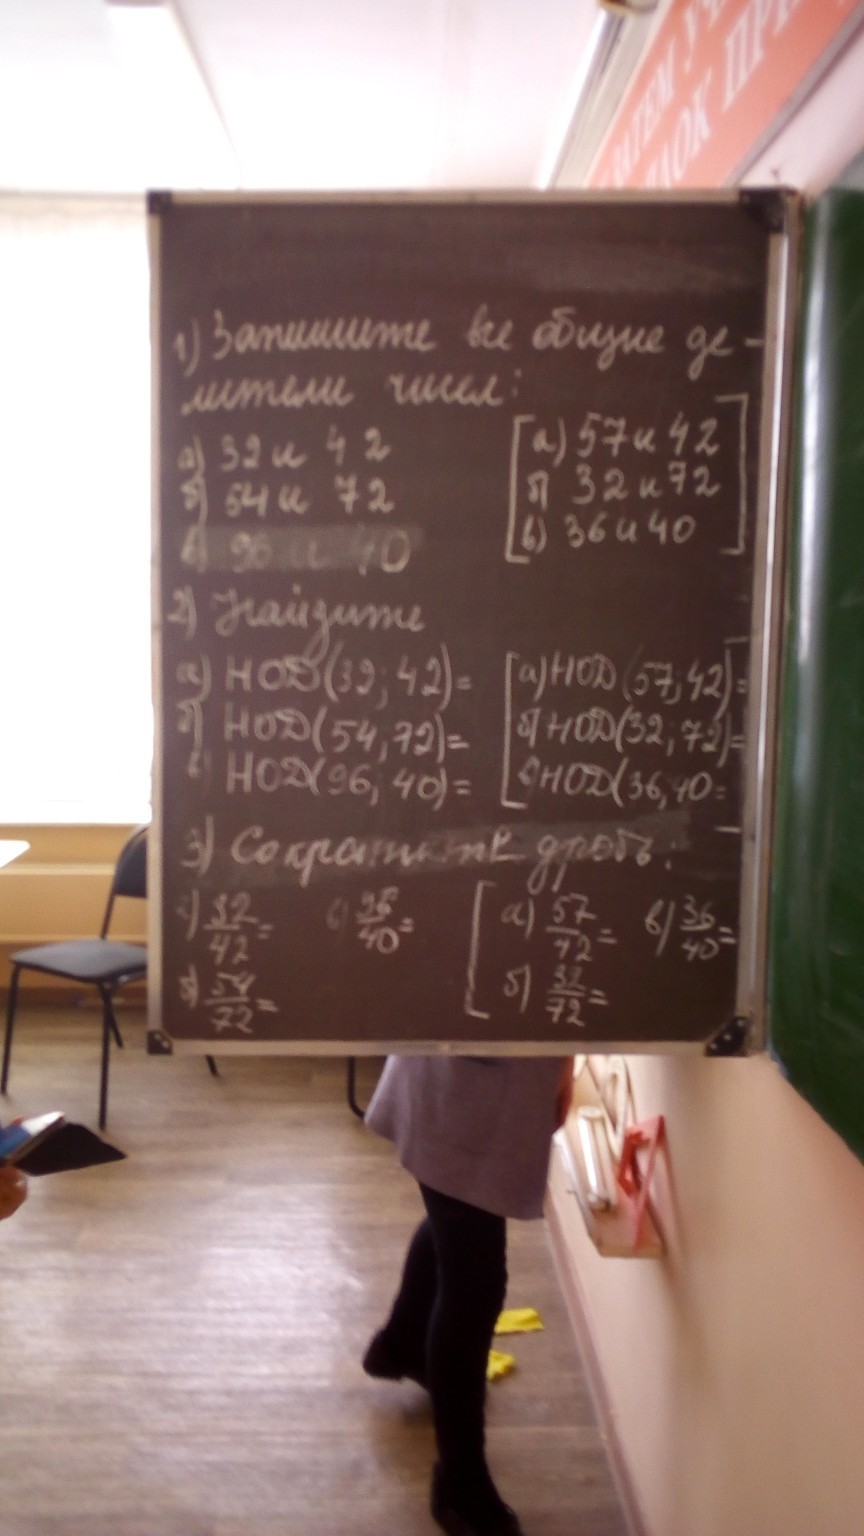 ЗАТЕМ УЧ
ЛОК ПРИ
1) Запишите все общие де-
лители чисел:
а) 32 и 42
б) 54 и 72
в) 96 и 40
[а) 57 и 42]
б) 32 и 72
в) 36 и 40
2) Найдите
а) НОД(32; 42)=
б) НОД(54; 72)=
в) НОД(96; 40)=
[а) НОД(57; 42)=
б) НОД(32; 72)=
в) НОД(36, 40=
3) Сократите дробь:
а) 32/42=
в) 96/40=
б) 54/72=
[а) 57/42=
в) 36/40=
б) 32/72=